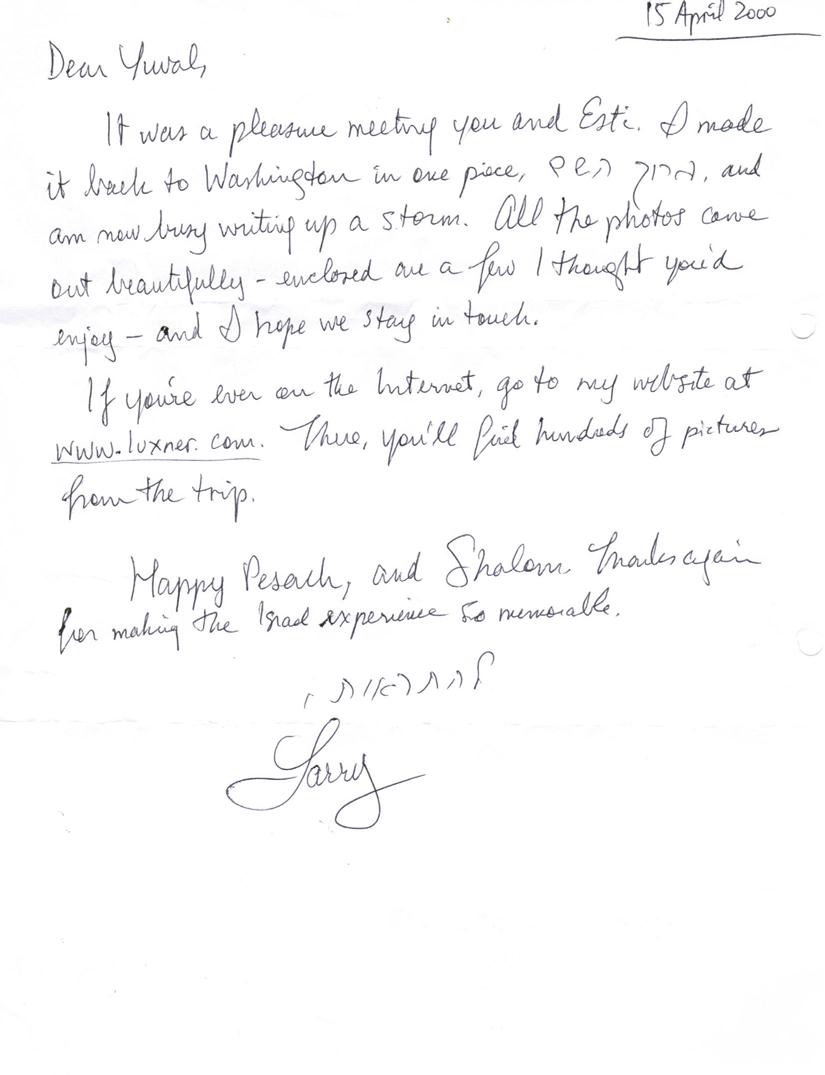 15 April 2000
Dear Yuval,
It was a pleasure meeting you and Esti. I made
it back to Washington in one piece, ברוך השם, and
am now busy writing up a storm. All the photos came
out beautifully - enclosed are a few I thought you'd
enjoy - and I hope we stay in touch.
If you're ever on the Internet, go to my website at
www.luxner.com. There, you'll find hundreds of pictures
from the trip.
Happy Pesach, and Shalom. Thanks again
for making the Israel experience so memorable.
להתראות,
Larry